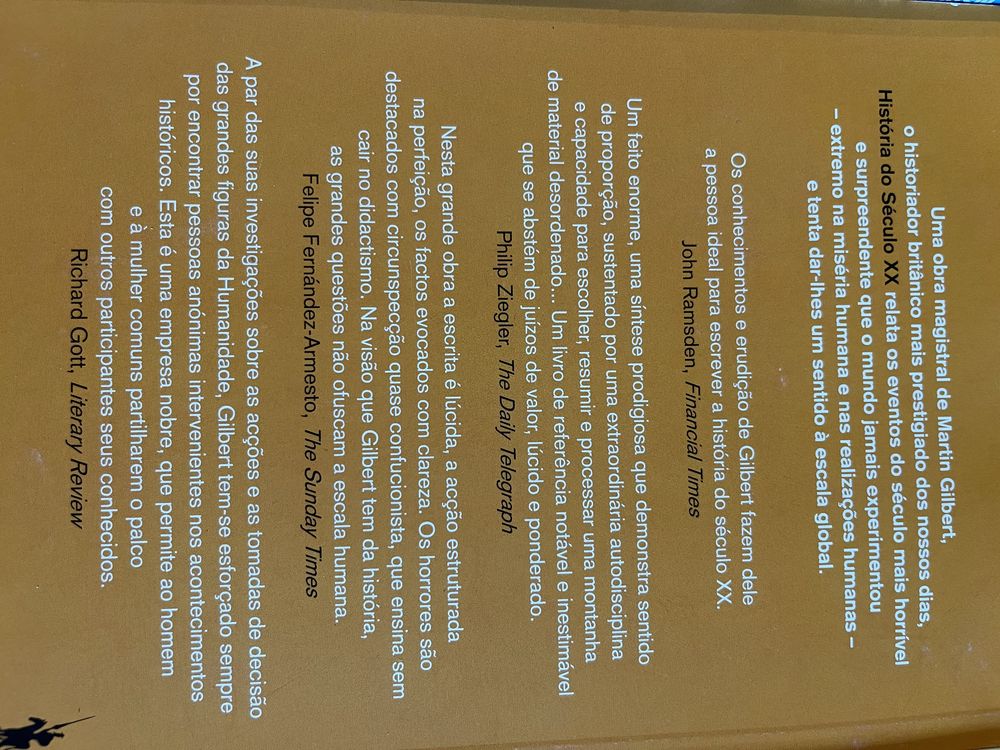 Uma obra magistral de Martin Gilbert,
o historiador britânico mais prestigiado dos nossos dias,
História do Século XX relata os eventos do século mais horrível
e surpreendente que o mundo jamais experimentou
– extremo na miséria humana e nas realizações humanas –
e tenta dar-lhes um sentido à escala global.
Os conhecimentos e erudição de Gilbert fazem dele
a pessoa ideal para escrever a história do século XX.
John Ramsden, Financial Times
Um feito enorme, uma síntese prodigiosa que demonstra sentido
de proporção, sustentado por uma extraordinária autodisciplina
e capacidade para escolher, resumir e processar uma montanha
de material desordenado... Um livro de referência notável e inestimável
que se abstém de juízos de valor, lúcido e ponderado.
Philip Ziegler, The Daily Telegraph
Nesta grande obra a escrita é lúcida, a acção estruturada
na perfeição, os factos evocados com clareza. Os horrores são
destacados com circunspecção quase confucionista, que ensina sem
cair no didactismo. Na visão que Gilbert tem da história,
as grandes questões não ofuscam a escala humana.
Felipe Fernández-Armesto, The Sunday Times
A par das suas investigações sobre as acções e as tomadas de decisão
das grandes figuras da Humanidade, Gilbert tem-se esforçado sempre
por encontrar pessoas anónimas intervenientes nos acontecimentos
históricos. Esta é uma empresa nobre, que permite ao homem
e à mulher comuns partilharem o palco
com outros participantes seus conhecidos.
Richard Gott, Literary Review